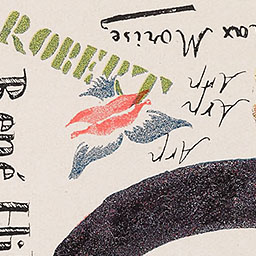 ROBERT
Max Morise
Arp
Arp
Arp
René Hi